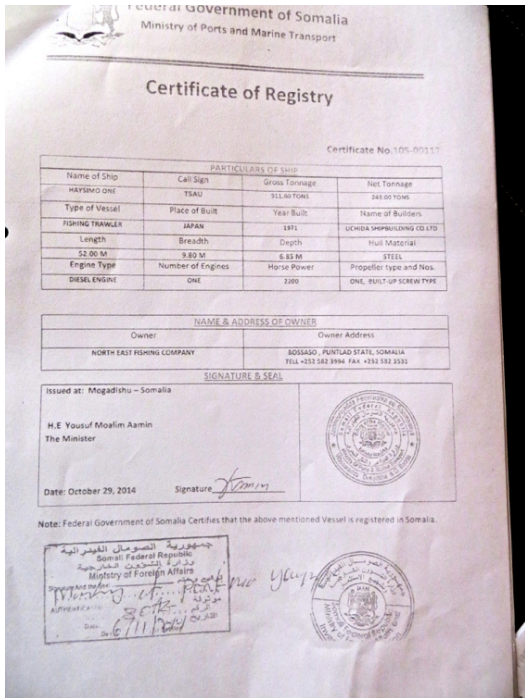 Federal Government of Somalia
Ministry of Ports and Marine Transport
Certificate of Registry
Certificate No:105-00117
PARTICULARS OF SHIP
Name of Ship Call Sign Gross Tonnage Net Tonnage
HAYSIMO ONE TSAU 911.60 TONS 243.00 TONS
Type of Vessel Place of Built Year Built Name of Builders
FISHING TRAWLER JAPAN 1971 UCHIDA SHIPBUILDING CO LTD
Length Breadth Depth Hull Material
52.00 M 9.80 M 6.85 M STEEL
Engine Type Number of Engines Horse Power Propeller type and Nos.
DIESEL ENGINE ONE 2200 ONE, BUILT-UP SCREW TYPE
NAME & ADDRESS OF OWNER
Owner Owner Address
NORTH EAST FISHING COMPANY BOSSASO , PUNTLAD STATE, SOMALIA
TELL +252 582 3994 FAX +252 582 3531
SIGNATURE & SEAL
Issued at: Mogadishu – Somalia
H.E Yousuf Moalim Aamin
The Minister
Date: October 29, 2014 Signature
Note: Federal Government of Somalia Certifies that the above mentioned Vessel is registered in Somalia.
جمهورية الصومال الفيدرالية
Somali Federal Republic
وزارة الشؤون الخارجية
Ministry of Foreign Affairs
الرقم
Date 6/11/2014 التاريخ